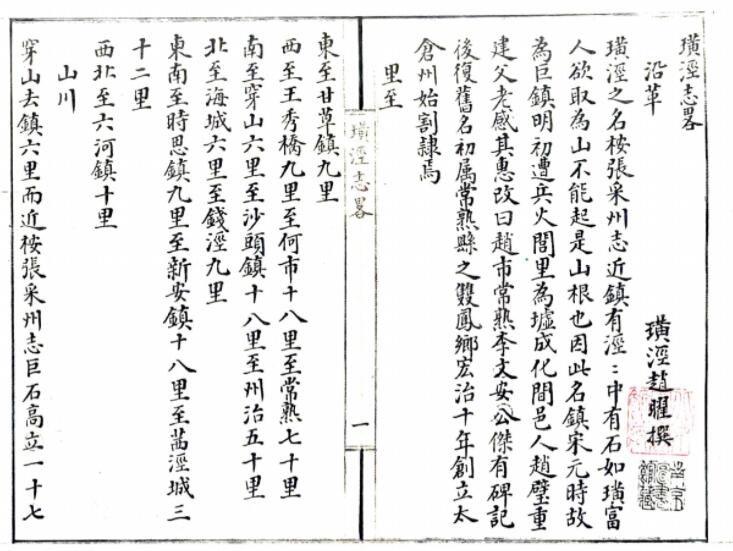 璜涇志畧
璜涇趙曜撰
沿革
璜涇之名桉張采州志近鎮有涇〻中有石如璜富
人欲取為山不能起是山根也因此名鎮宋元時故
為巨鎮明初遭兵火閭里為墟成化間邑人趙璧重
建父老感其惠改曰趙市常熟李文安公傑有碑記
後復舊名初属常熟縣之雙鳳鄉宏治十年創立太
倉州始割隷焉
里至
璜涇志畧
一
東至甘草鎮九里
西至王秀橋九里至何市十八里至常熟七十里
南至穿山六里至沙頭鎮十八里至州治五十里
北至海城六里至錢涇九里
東南至時思鎮九里至新安鎮十八里至茜涇城三
十二里
西北至六河鎮十里
山川
穿山去鎮六里而近桉張采州志巨石高立一十七